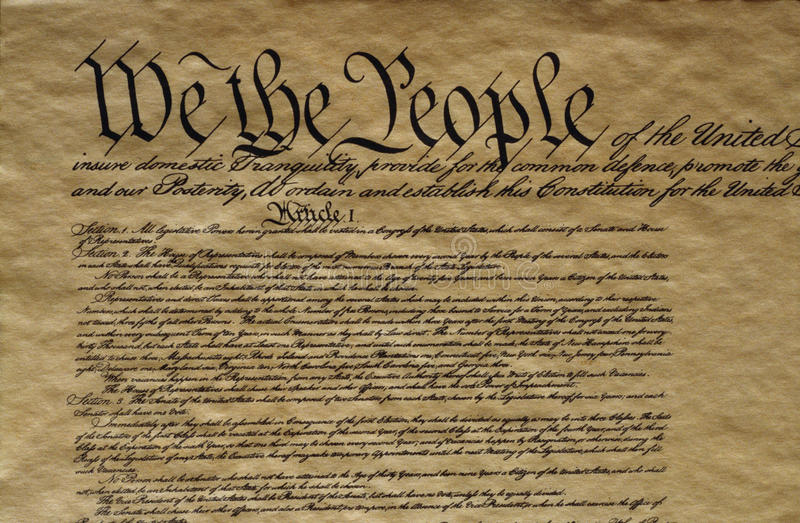 We the People of the United
insure domestic Tranquility, provide for the common defence, promote the
and our Posterity, do ordain and establish this Constitution for the United
Article I.
Section. 1. All legislative Powers herein granted shall be vested in a Congress of the United States, which shall consist of a Senate and House
of Representatives.
Section. 2. The House of Representatives shall be composed of Members chosen every second Year by the People of the several States, and the Electors
in each State shall have the Qualifications requisite for Electors of the most numerous Branch of the State Legislature.
No Person shall be a Representative who shall not have attained to the Age of twenty five Years, and been seven Years a Citizen of the United States,
and who shall not, when elected, be an Inhabitant of that State in which he shall be chosen.
Representatives and direct Taxes shall be apportioned among the several States which may be included within this Union, according to their respective
Numbers, which shall be determined by adding to the whole Number of free Persons, including those bound to Service for a Term of Years, and excluding Indians
not taxed, three fifths of all other Persons. The actual Enumeration shall be made within three Years after the first Meeting of the Congress of the United States,
and within every subsequent Term of ten Years, in such Manner as they shall by Law direct. The Number of Representatives shall not exceed one for every
thirty Thousand, but each State shall have at Least one Representative; and until such enumeration shall be made, the State of New Hampshire shall be
entitled to chuse three, Massachusetts eight, Rhode Island and Providence Plantations one, Connecticut five, New York six, New Jersey four, Pennsylvania
eight, Delaware one, Maryland six, Virginia ten, North Carolina five, South Carolina five, and Georgia three.
When vacancies happen in the Representation from any State, the Executive Authority thereof shall issue Writs of Election to fill such Vacancies.
The House of Representatives shall chuse their Speaker and other Officers; and shall have the sole Power of Impeachment.
Section. 3. The Senate of the United States shall be composed of two Senators from each State, chosen by the Legislature thereof for six Years; and each
Senator shall have one Vote.
Immediately after they shall be assembled in Consequence of the first Election, they shall be divided as equally as may be into three Classes. The Seats
of the Senators of the first Class shall be vacated at the Expiration of the second Year, of the second Class at the Expiration of the fourth Year, and of the third
Class at the Expiration of the sixth Year, so that one third may be chosen every second Year; and if Vacancies happen by Resignation, or otherwise, during the
Recess of the Legislature of any State, the Executive thereof may make temporary Appointments until the next Meeting of the Legislature, which shall then fill
such Vacancies.
No Person shall be a Senator who shall not have attained to the Age of thirty Years, and been nine Years a Citizen of the United States, and who shall
not, when elected, be an Inhabitant of that State for which he shall be chosen.
The Vice President of the United States shall be President of the Senate, but shall have no Vote, unless they be equally divided.
The Senate shall chuse their other Officers, and also a President pro tempore, in the Absence of the Vice President, or when he shall exercise the Office of
dreamstime